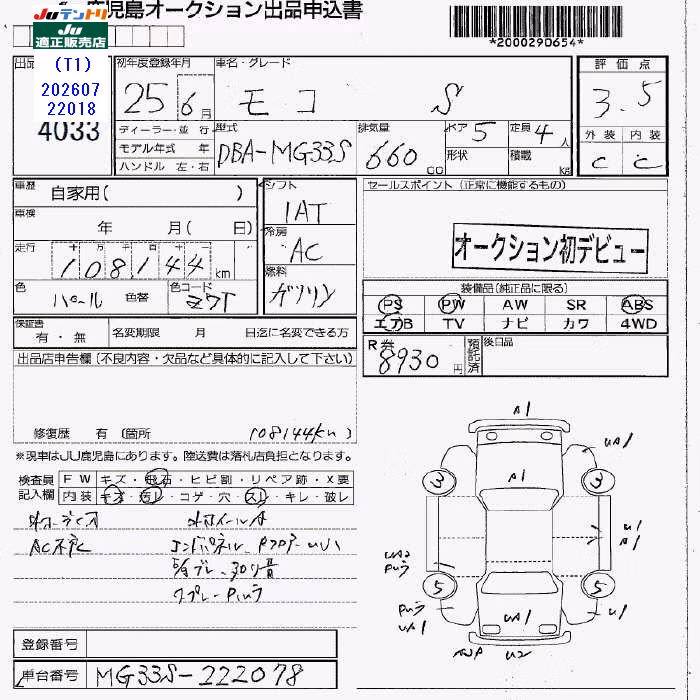 鹿児島オークション出品申込書
JUテントリ
JU
適正販売店
*2000290654*
(T1)
202607
22018
4033
初年度登録年月
25 6 月
車名・グレード
モコ S
評価点
3.5
外装 内装
C C
ディーラー・並行
モデル年式 年
ハンドル 左・右
型式
DBA-MG33S
排気量
660 cc
ドア 5
形状
定員 4 人
積載 kg
車歴
自家用( )
車検
年 月( 日)
走行
十 万 千 百 十 一
108144 km
色
パール
色替
色コード
Z7T
シフト
IAT
冷房
AC
燃料
ガソリン
セールスポイント (正常に機能するもの)
オークション初デビュー
装備品(純正品に限る)
PS PW AW SR ABS
エアB TV ナビ カワ 4WD
保証書
有・無
名変期限 月 日迄に名変できる方
R券
8930 円
預託済
後日品
出品店申告欄(不良内容・欠品など具体的に記入して下さい)
修復歴 有 (箇所 108144km)
※現車はJU鹿児島にあります。陸送費は落札店負担となります。
検査員
記入欄
FW キズ・飛石・ヒビ割・リペア跡・X要
内装 キズ・汚レ・コゲ・穴・スレ・キレ・破レ
AC不冷
A1
A1
UA1
3
3
U1
A1
UA2
5
5
UA1
UA1
U1
U2
登録番号
車台番号
MG33S-222078